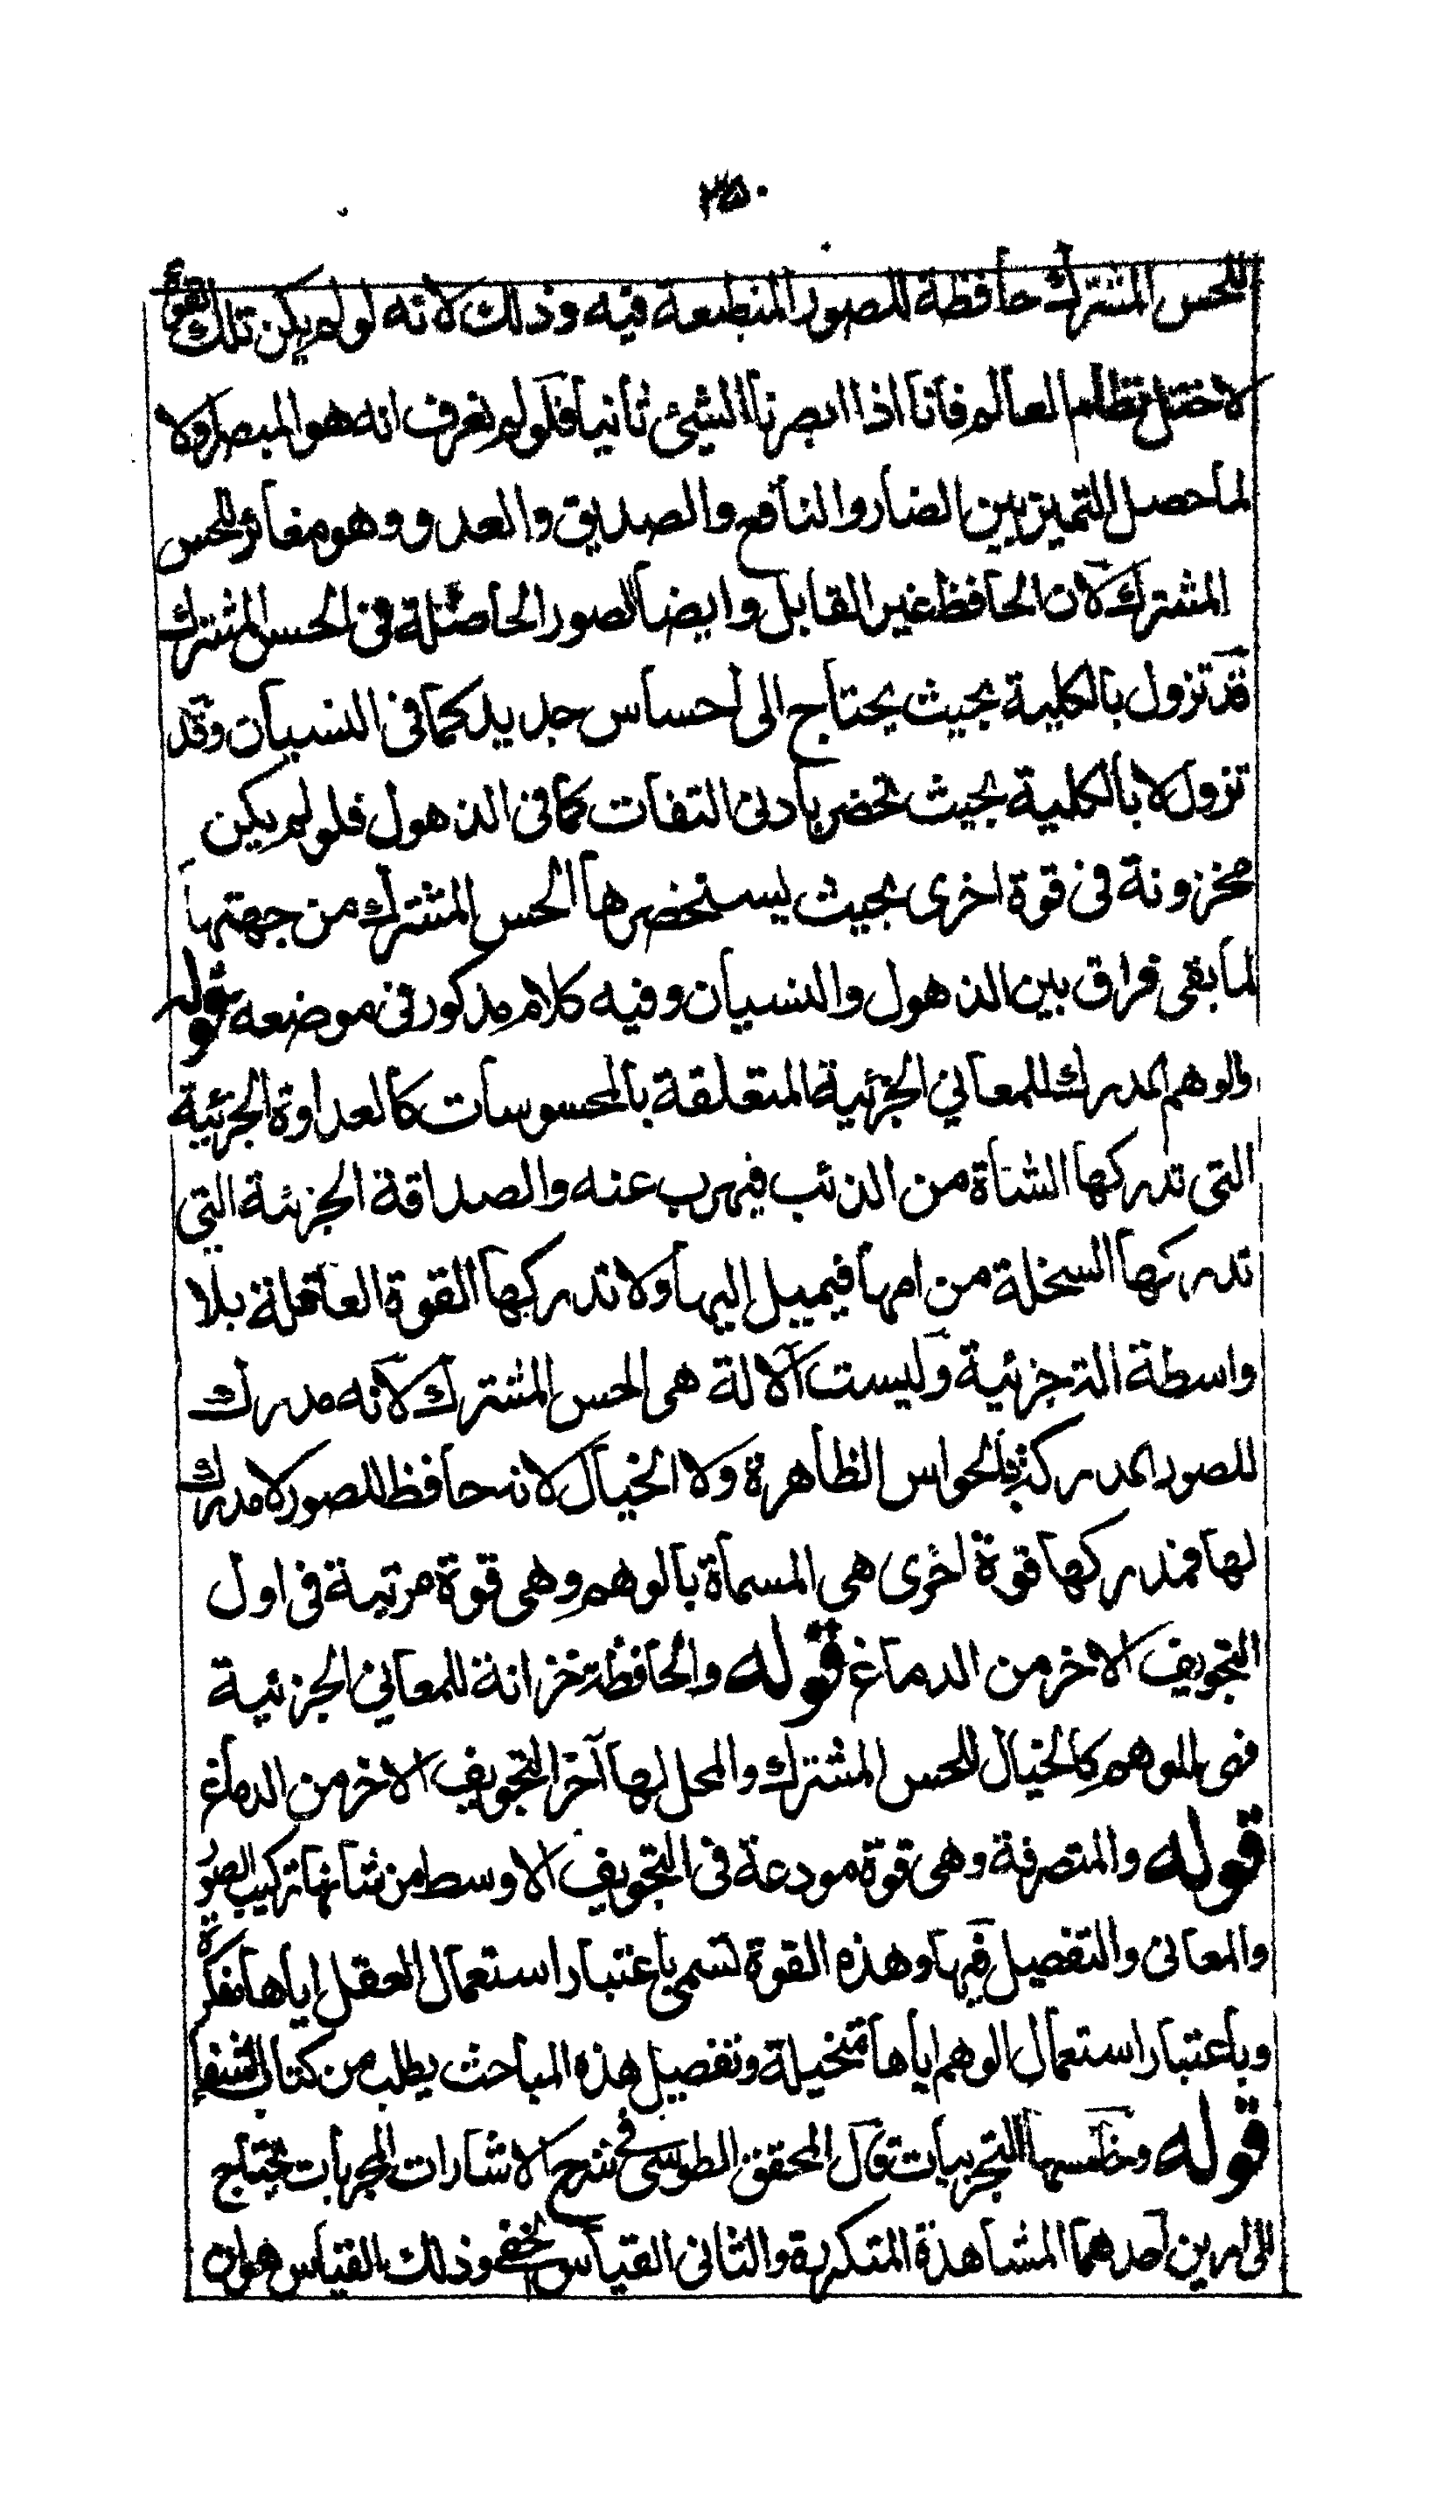 ٢٥٠
للحس المشترك حافظة للصور المنطبعة فيه وذلك لانه لو لم يكن تلك القوة
لاختل نظام العالم فانا اذا ابصرنا الشيئ ثانيا فلو لم نعرف انه هو المبصر اولا
لما حصل التميز بين الضار والنافع والصديق والعدو وهو مغائر للحس
المشترك لان الحافظ غير القابل وايضا الصور الحاصلة فى الحس المشترك
قد تزول بالكلية بحيث يحتاج الى احساس جديد كما فى النسيان وقد
تزول لا بالكلية بحيث تحضر بادنى التفات كما فى الذهول فلو لم يكن
مخزونة فى قوة اخرى بحيث يستحضرها الحس المشترك من جهتها
لما بقى فراق بين الذهول والنسيان وفيه كلام مذكور فى موضعه قوله
والوهم المدرك للمعاني الجزئية المتعلقة بالمحسوسات كالعداوة الجزئية
التى تدركها الشاة من الذئب فيهرب عنه والصداقة الجزئة التي
تدركها السخلة من امها فيميل اليها ولا تدركها القوة العاقلة بلا
واسطة التجزئية وليست الآلة هى الحس المشترك لانه مدرك
للصور المدركة بالحواس الظاهرة ولا الخيال لانه حافظ للصور لا مدرك
لها فمدركها قوة اخرى هى المسماة بالوهم وهى قوة مرتبة فى اول
التجويف الاخر من الدماغ قوله والحافظة خزانة للمعاني الجزئية
فهى للوهم كالخيال للحس المشترك والمحل لها آخر التجويف الاخر من الدماغ
قوله والمتصرفة وهى قوة مودعة فى التجويف الاوسط من شانها تركيب الصور
والمعانى والتفصيل فيها وهذه القوة تسمى باعتبار استعمال العقل اياها مفكرة
وباعتبار استعمال الوهم اياها متخيلة وتفصيل هذه المباحث يطلب من كتاب الشفا
قوله وخامسها التجربيات قال المحقق الطوسى فى شرح الاشارات المجربات تحتاج
الى امرين احدهما المشاهدة المتكررة والثانى القياس الخفى وذلك القياس هو ان